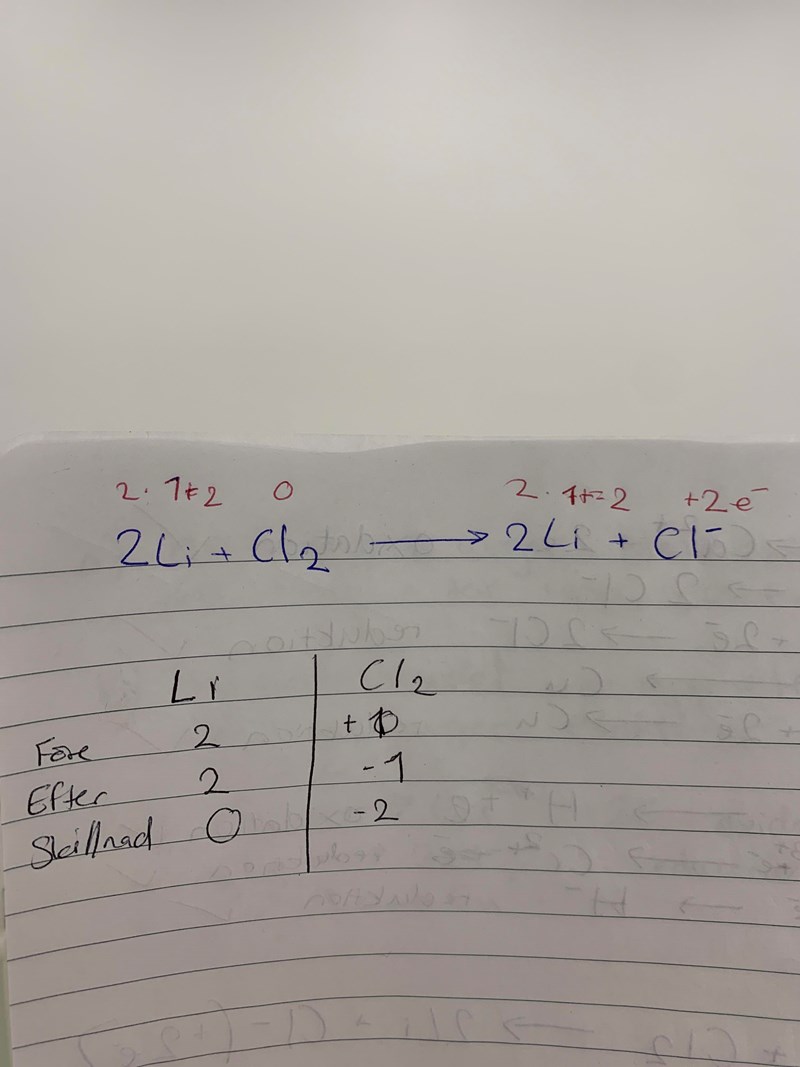 2·1+=2 0 2·1+=2 +2e⁻
2Li + Cl₂ → 2Li + Cl⁻
Li Cl₂
Före 2 + 0
Efter 2 -1
Skillnad 0 -2